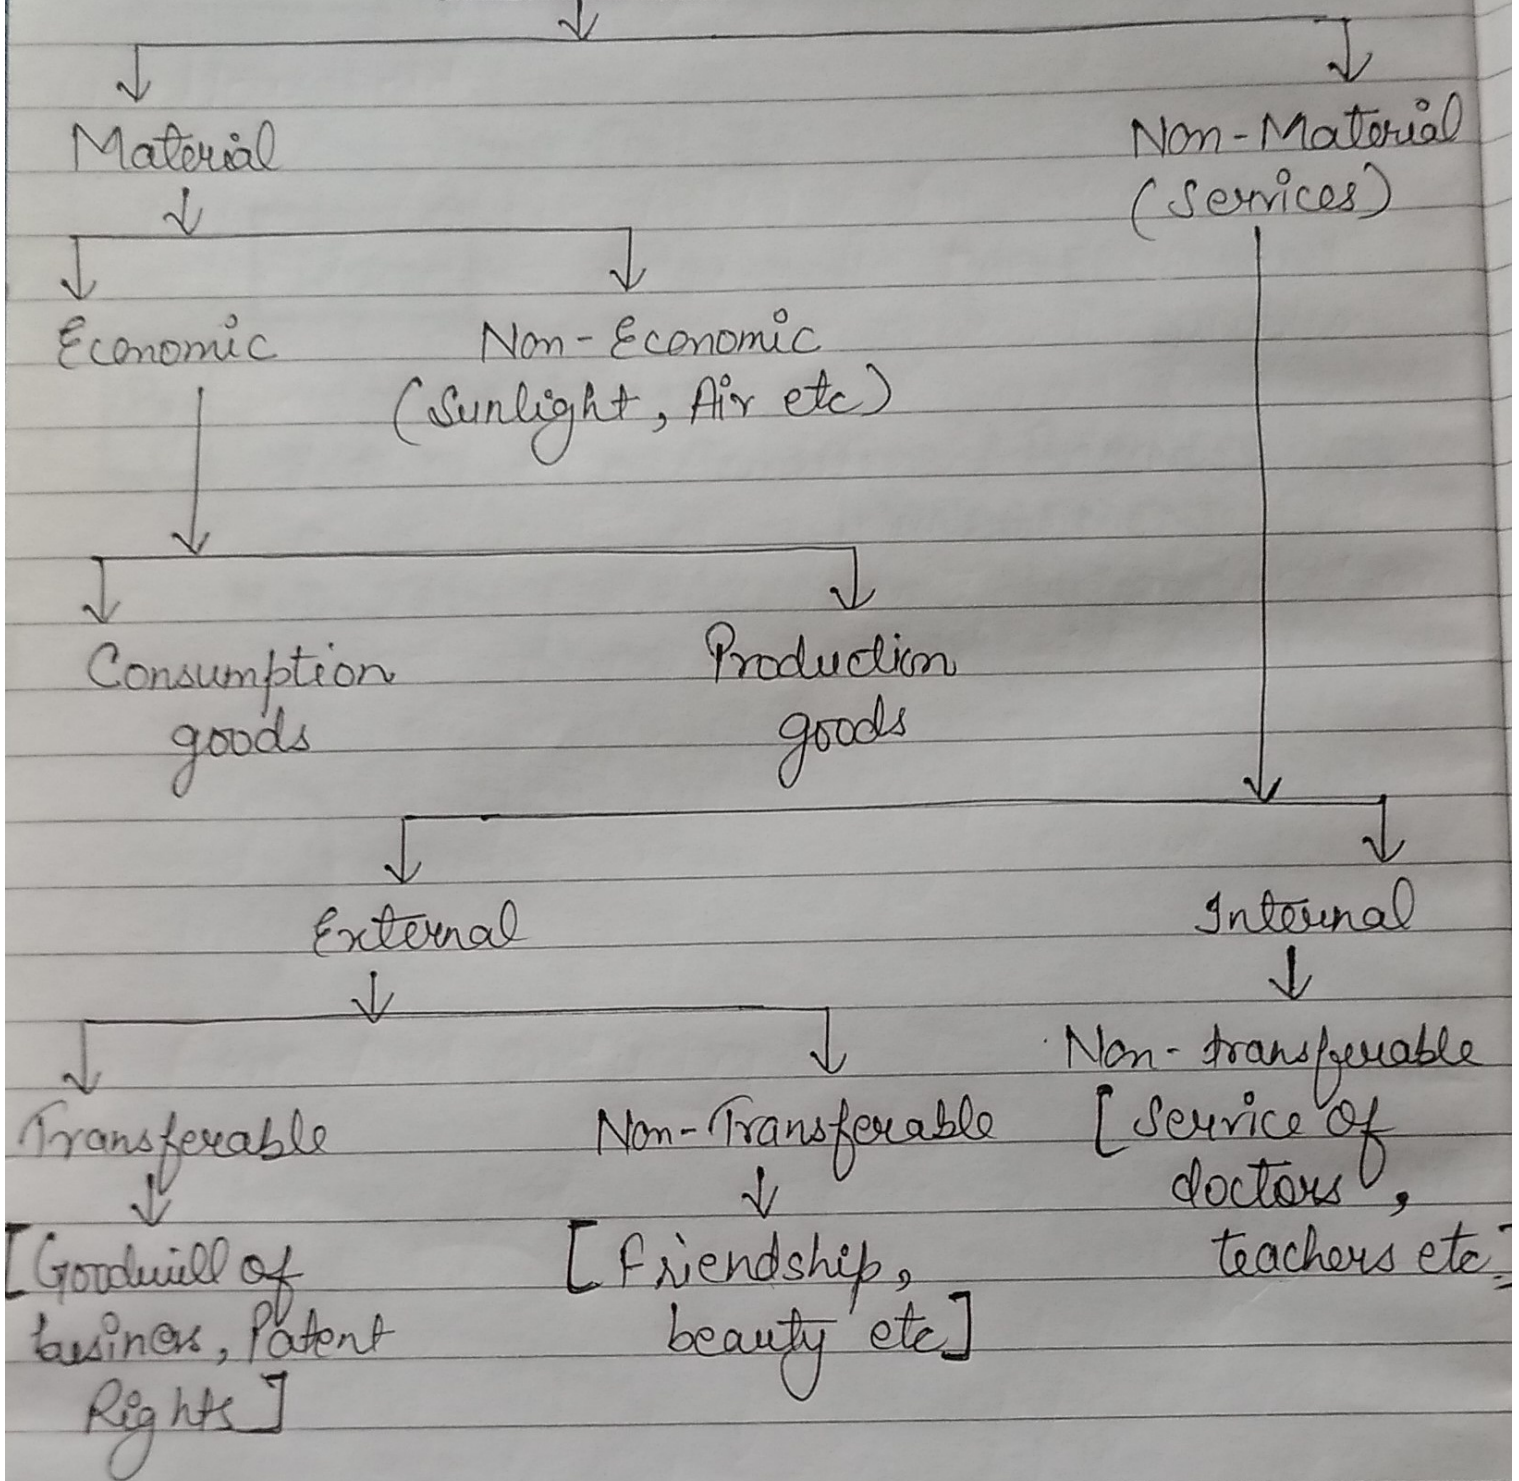 Material
Non-Material
(Services)
Economic
Non-Economic
(Sunlight, Air etc)
Consumption
goods
Production
goods
External
Internal
Transferable
Non-Transferable
Non-transferable
[Service of
doctors,
teachers etc]
[Goodwill of
business, Patent
Rights]
[Friendship,
beauty etc]